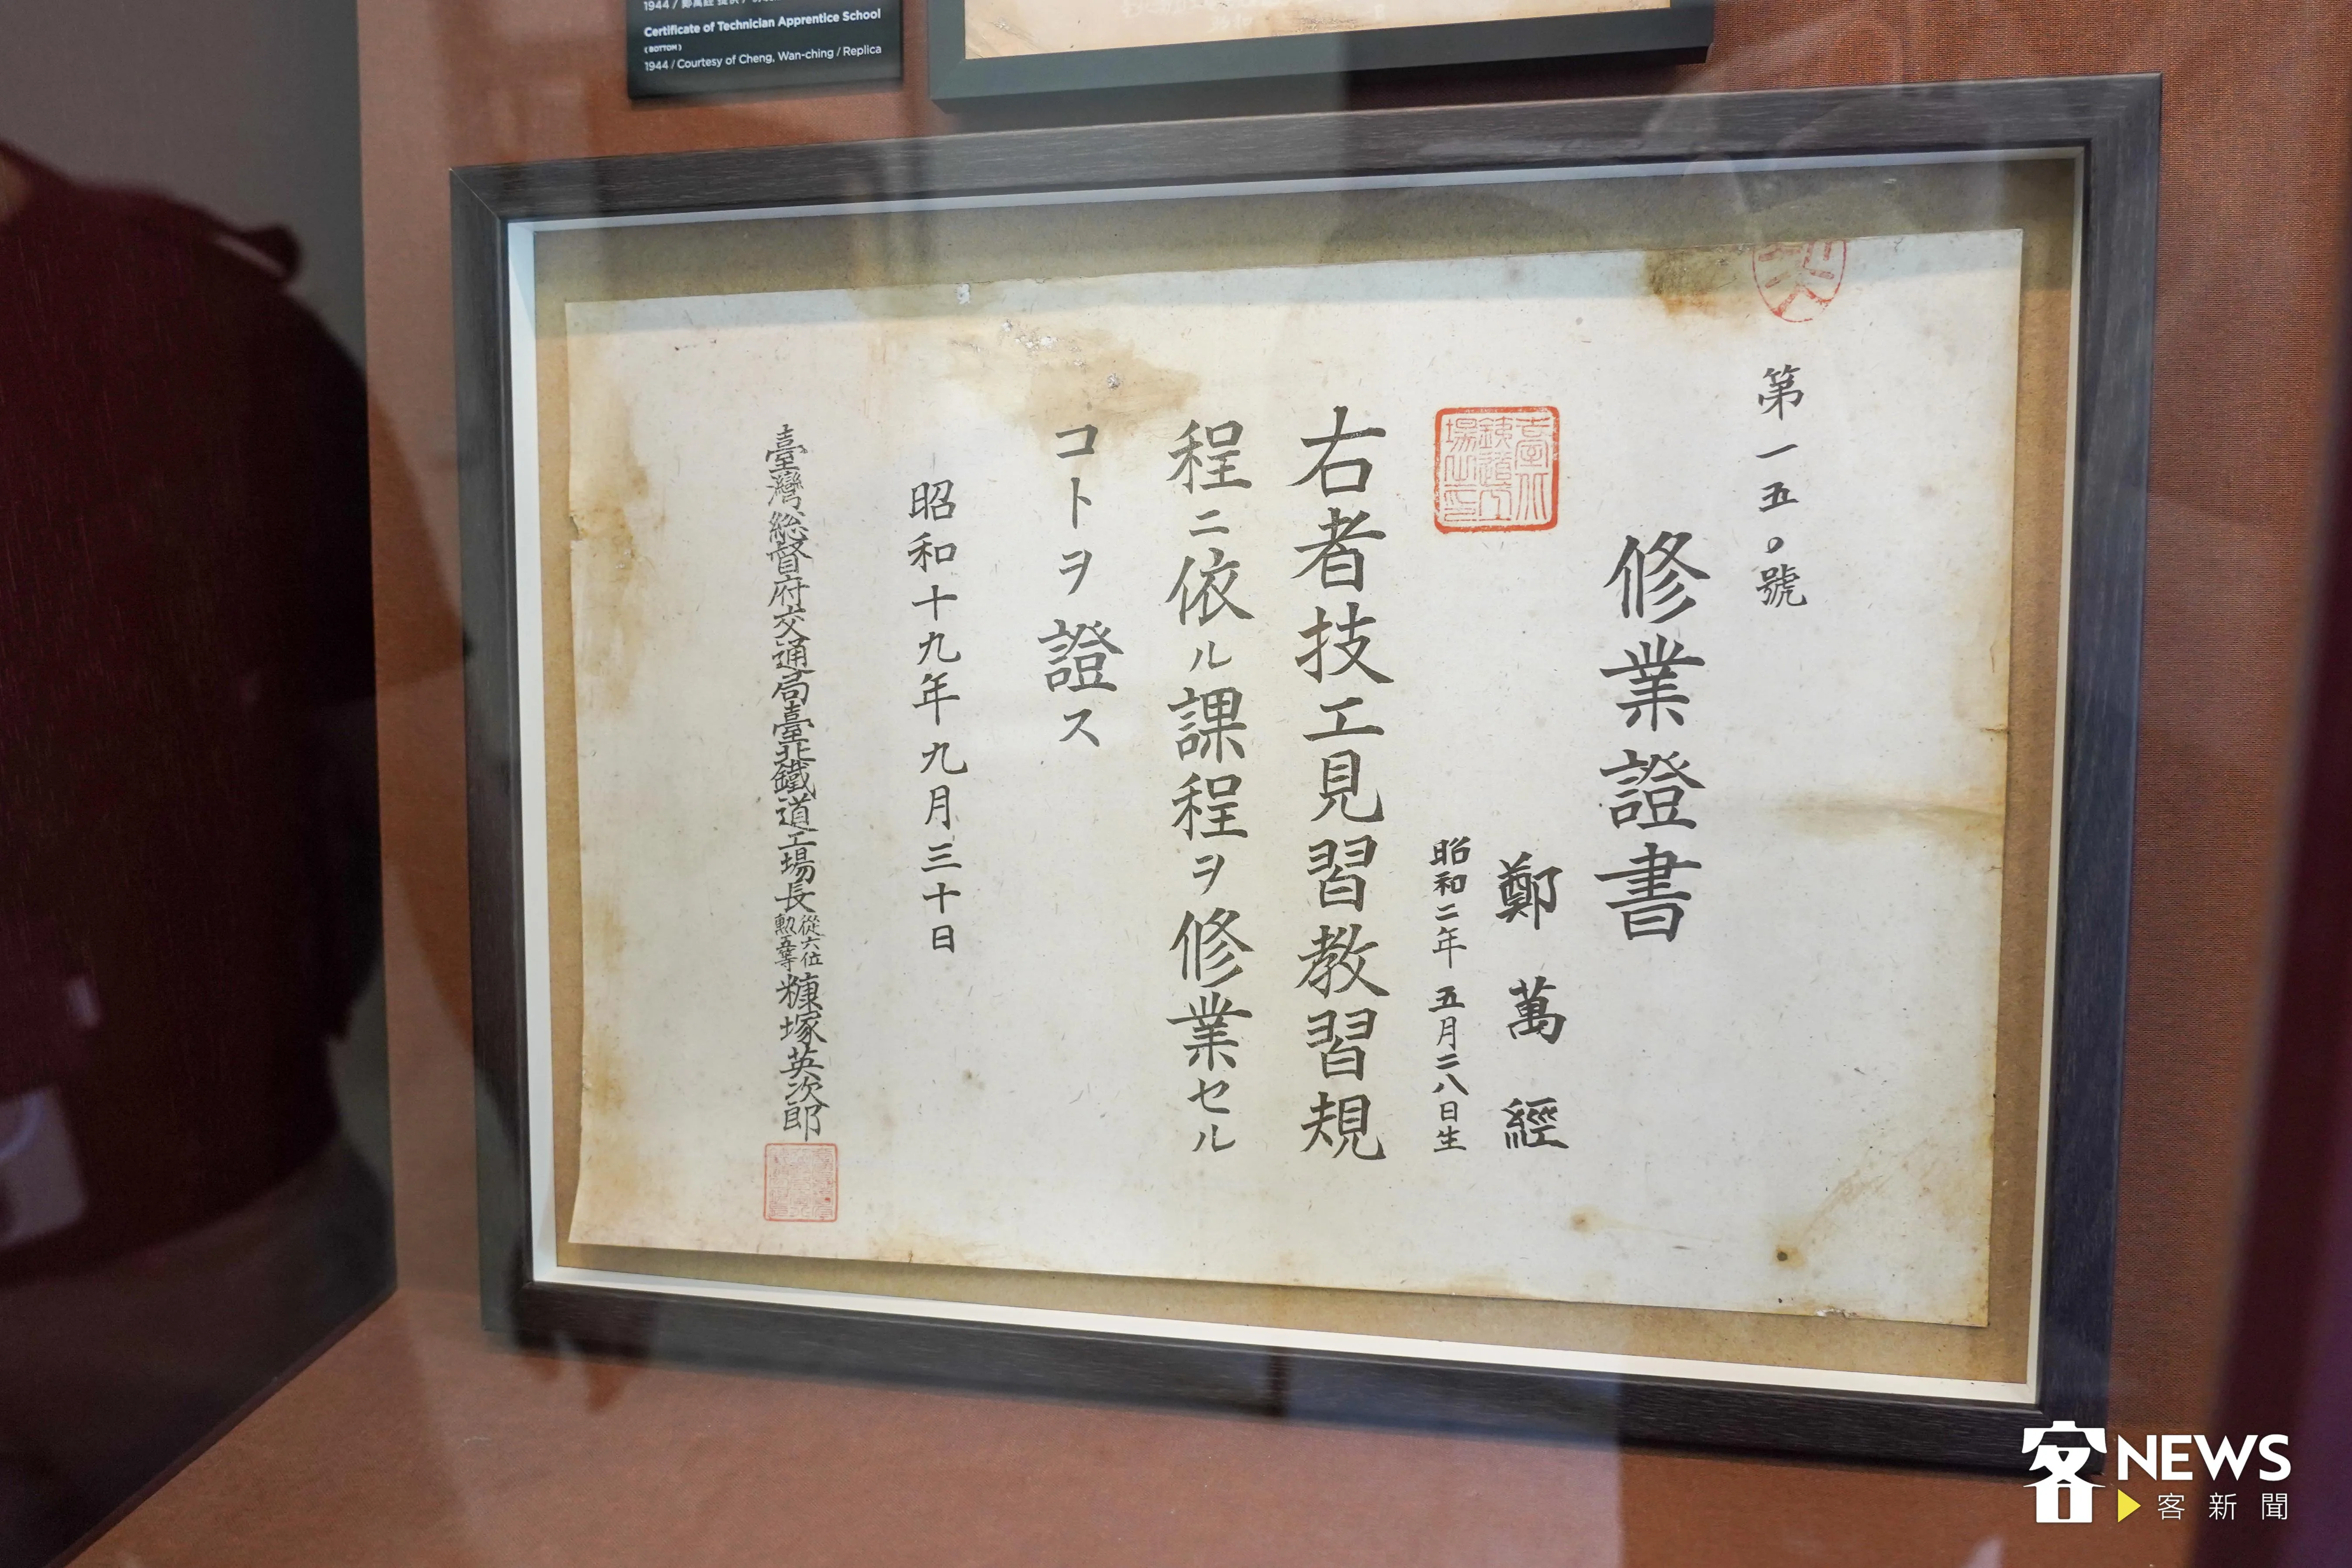 1944 / 鄭萬經 提供 /
Certificate of Technician Apprentice School
(BOTTOM)
1944 / Courtesy of Cheng, Wan-ching / Replica
第一五〇號
修業證書
鄭萬經
昭和二年五月二八日生
臺北
鐵道工
場之印
右者技工見習教習規
程ニ依ル課程ヲ修業セル
コトヲ證ス
昭和十九年九月三十日
臺灣総督府交通局臺北鐵道工場長從六位勲五等糠塚英次郎
客NEWS
客新聞